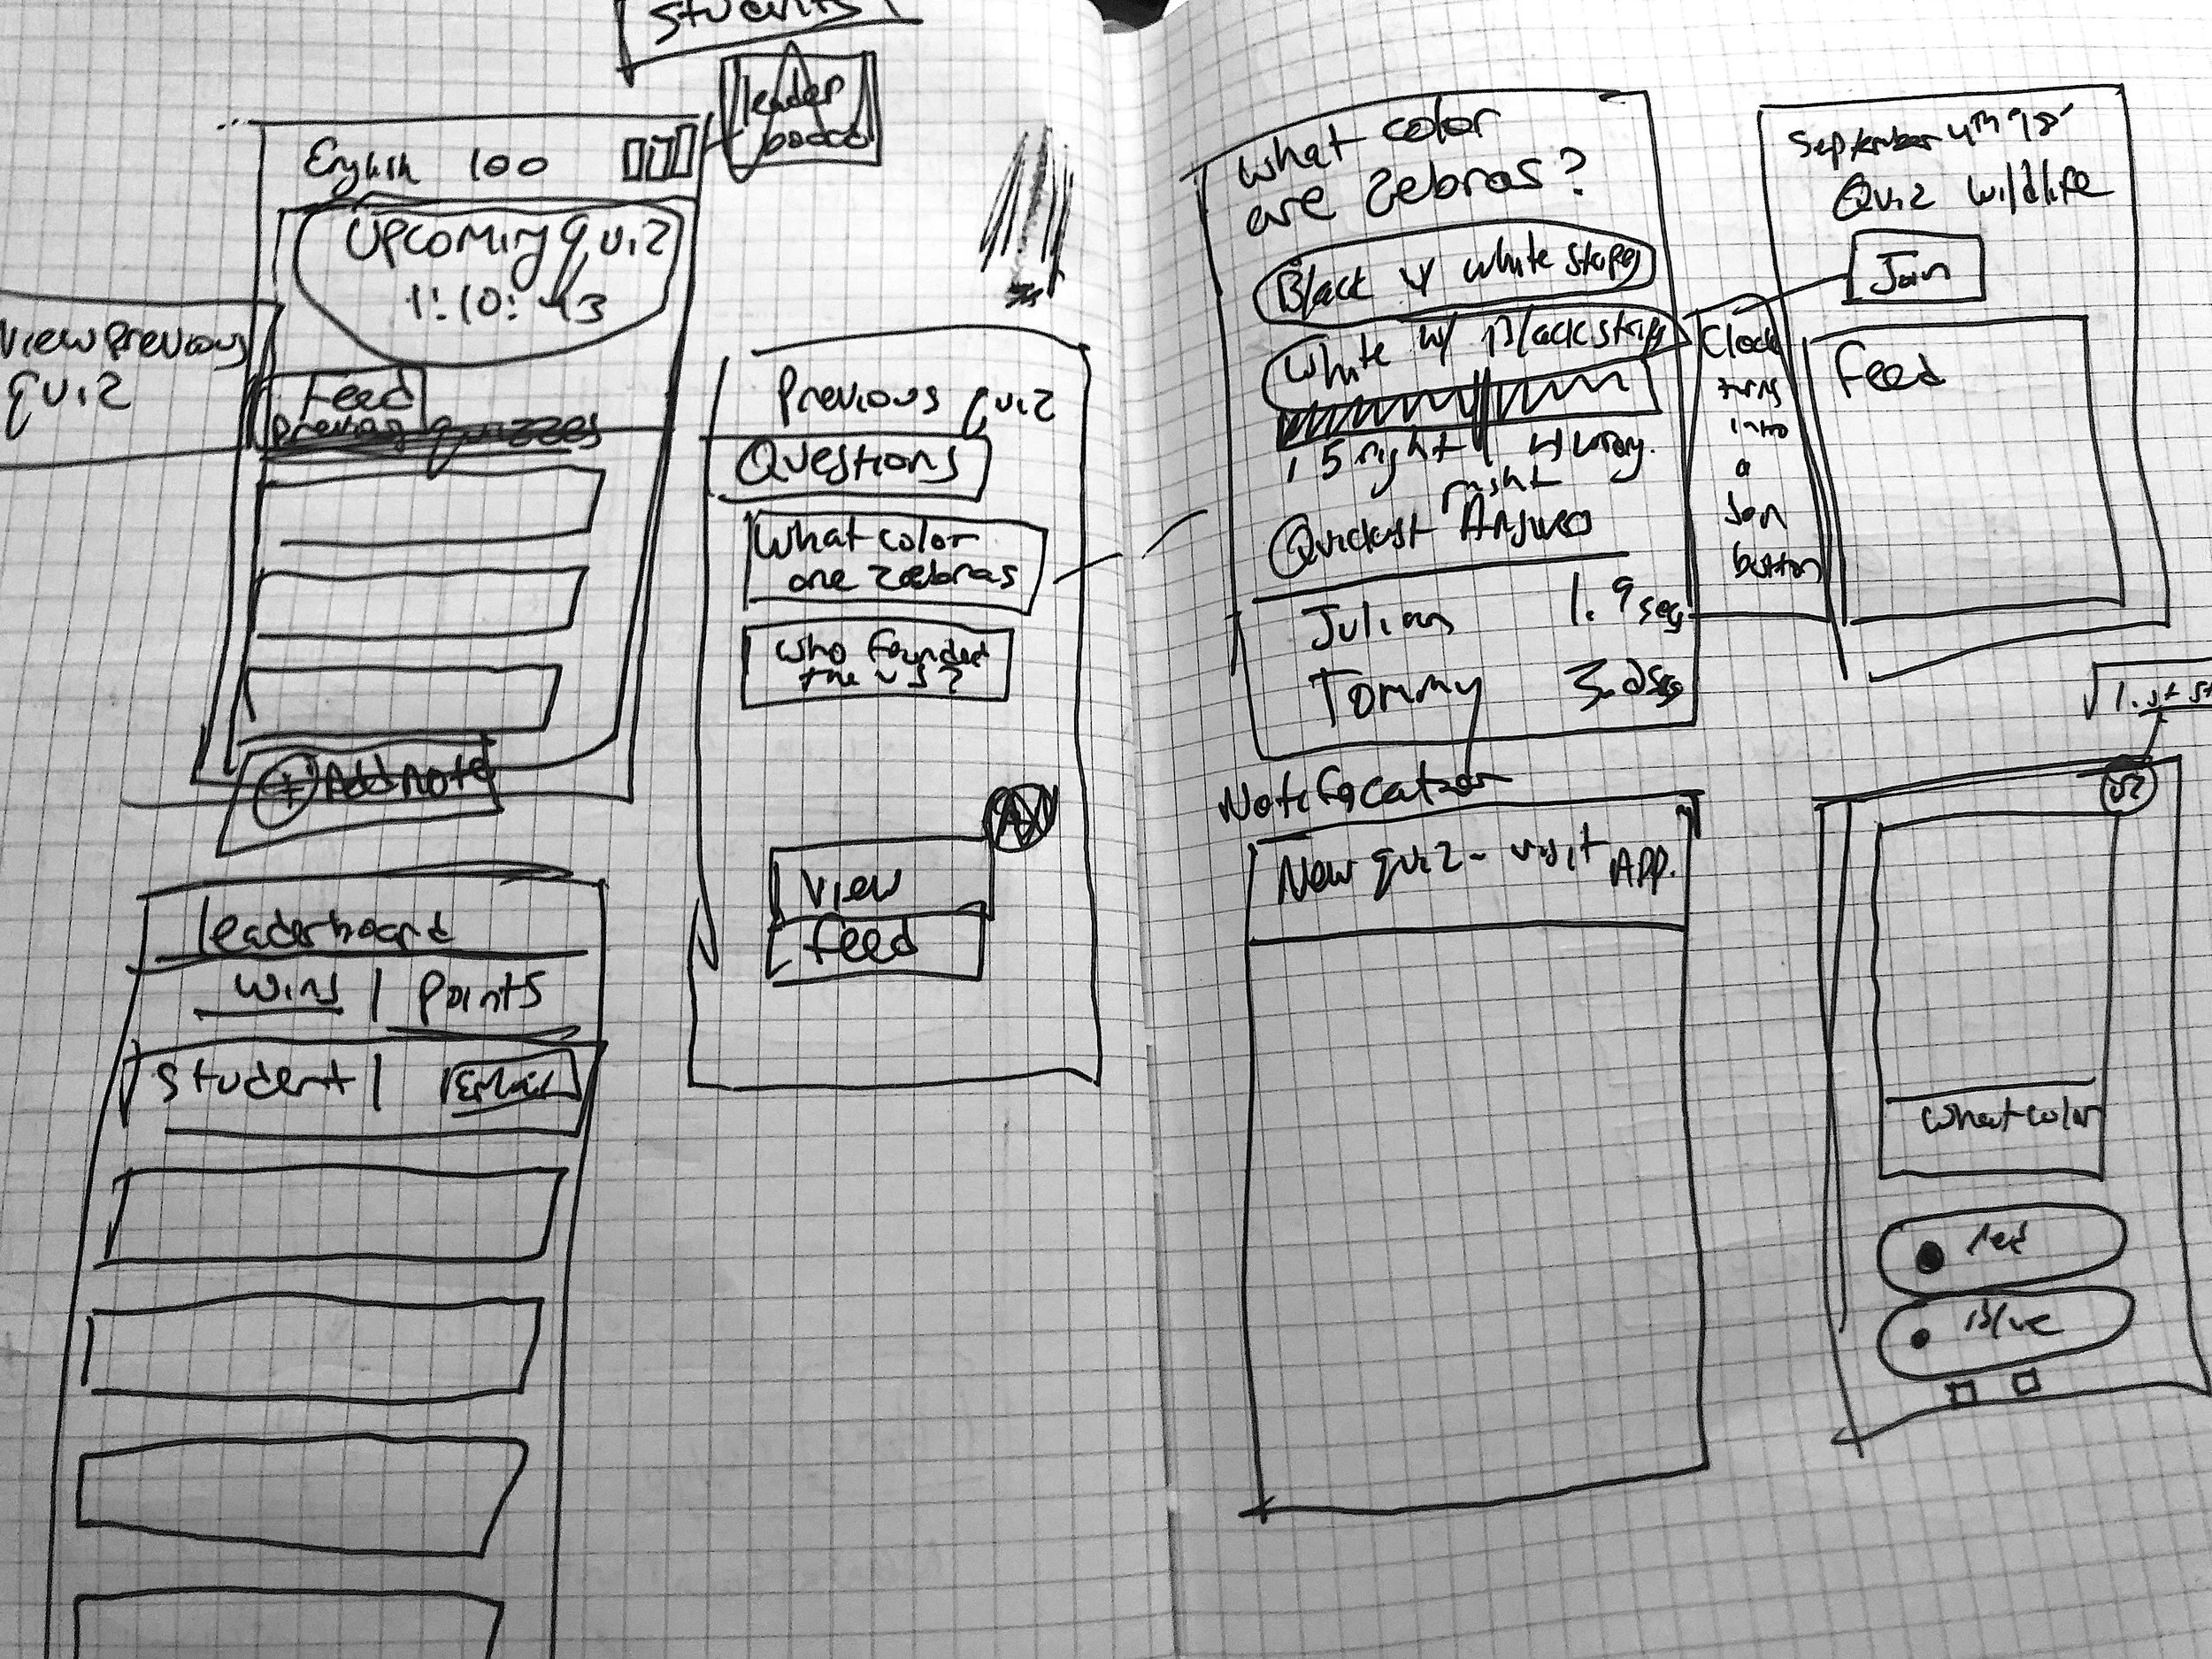 Students
leader
board
English 100
Upcoming quiz
1:10:43
View Previous
quiz
Feed
Previous quizzes
+ Add note
leaderboard
Wins | Points
Student |
Previous quiz
Questions
What color
are zebras
Who founded
the US?
View
Feed
What color
are Zebras?
Black w/ white stripes
White w/ Black stripes
15 right | 4 wrong.
right
Quickest Answer
Julian 1.9 sec
Tommy 3.2 sec
Clock
turns
into
a
Join
button
September 4th 98
Quiz Wildlife
Join
Feed
Notefacation
New quiz - visit APP.
What color
red
Blue